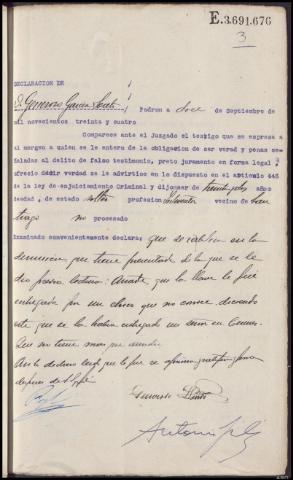 E.3.691.676
3
DECLARACION DE
D. Generoso García
Padron a doce de Septiembre de
mil novecientos treinta y cuatro
Comparece ante el Juzgado el testigo que se expresa a
al margen a quien se le entera de la obligacion de ser verad y penas se
ñaladas al delito de falso testimonio, preto juramento en forma legal y
ofrecio decir verdad se le advirtion en lo dispuesto en el articulo 445
de la ley de enjuiciamiento Criminal y dijo ser de treinta y años
de edad, de estado soltero profesion vecino de San
tiago no procesado
Examinado convenientemente declara; que se ratifica en la
denuncia que tiene presentada de la que se le
dio previa lectura: Añade que la llave le fué
entregada por un chico que no conoce diciendo
este que se la habia entregado un
Que no tiene mas que decir
leida que le fue se afirma y ratifica firma
despues de S.Sª
Generoso
Antonio